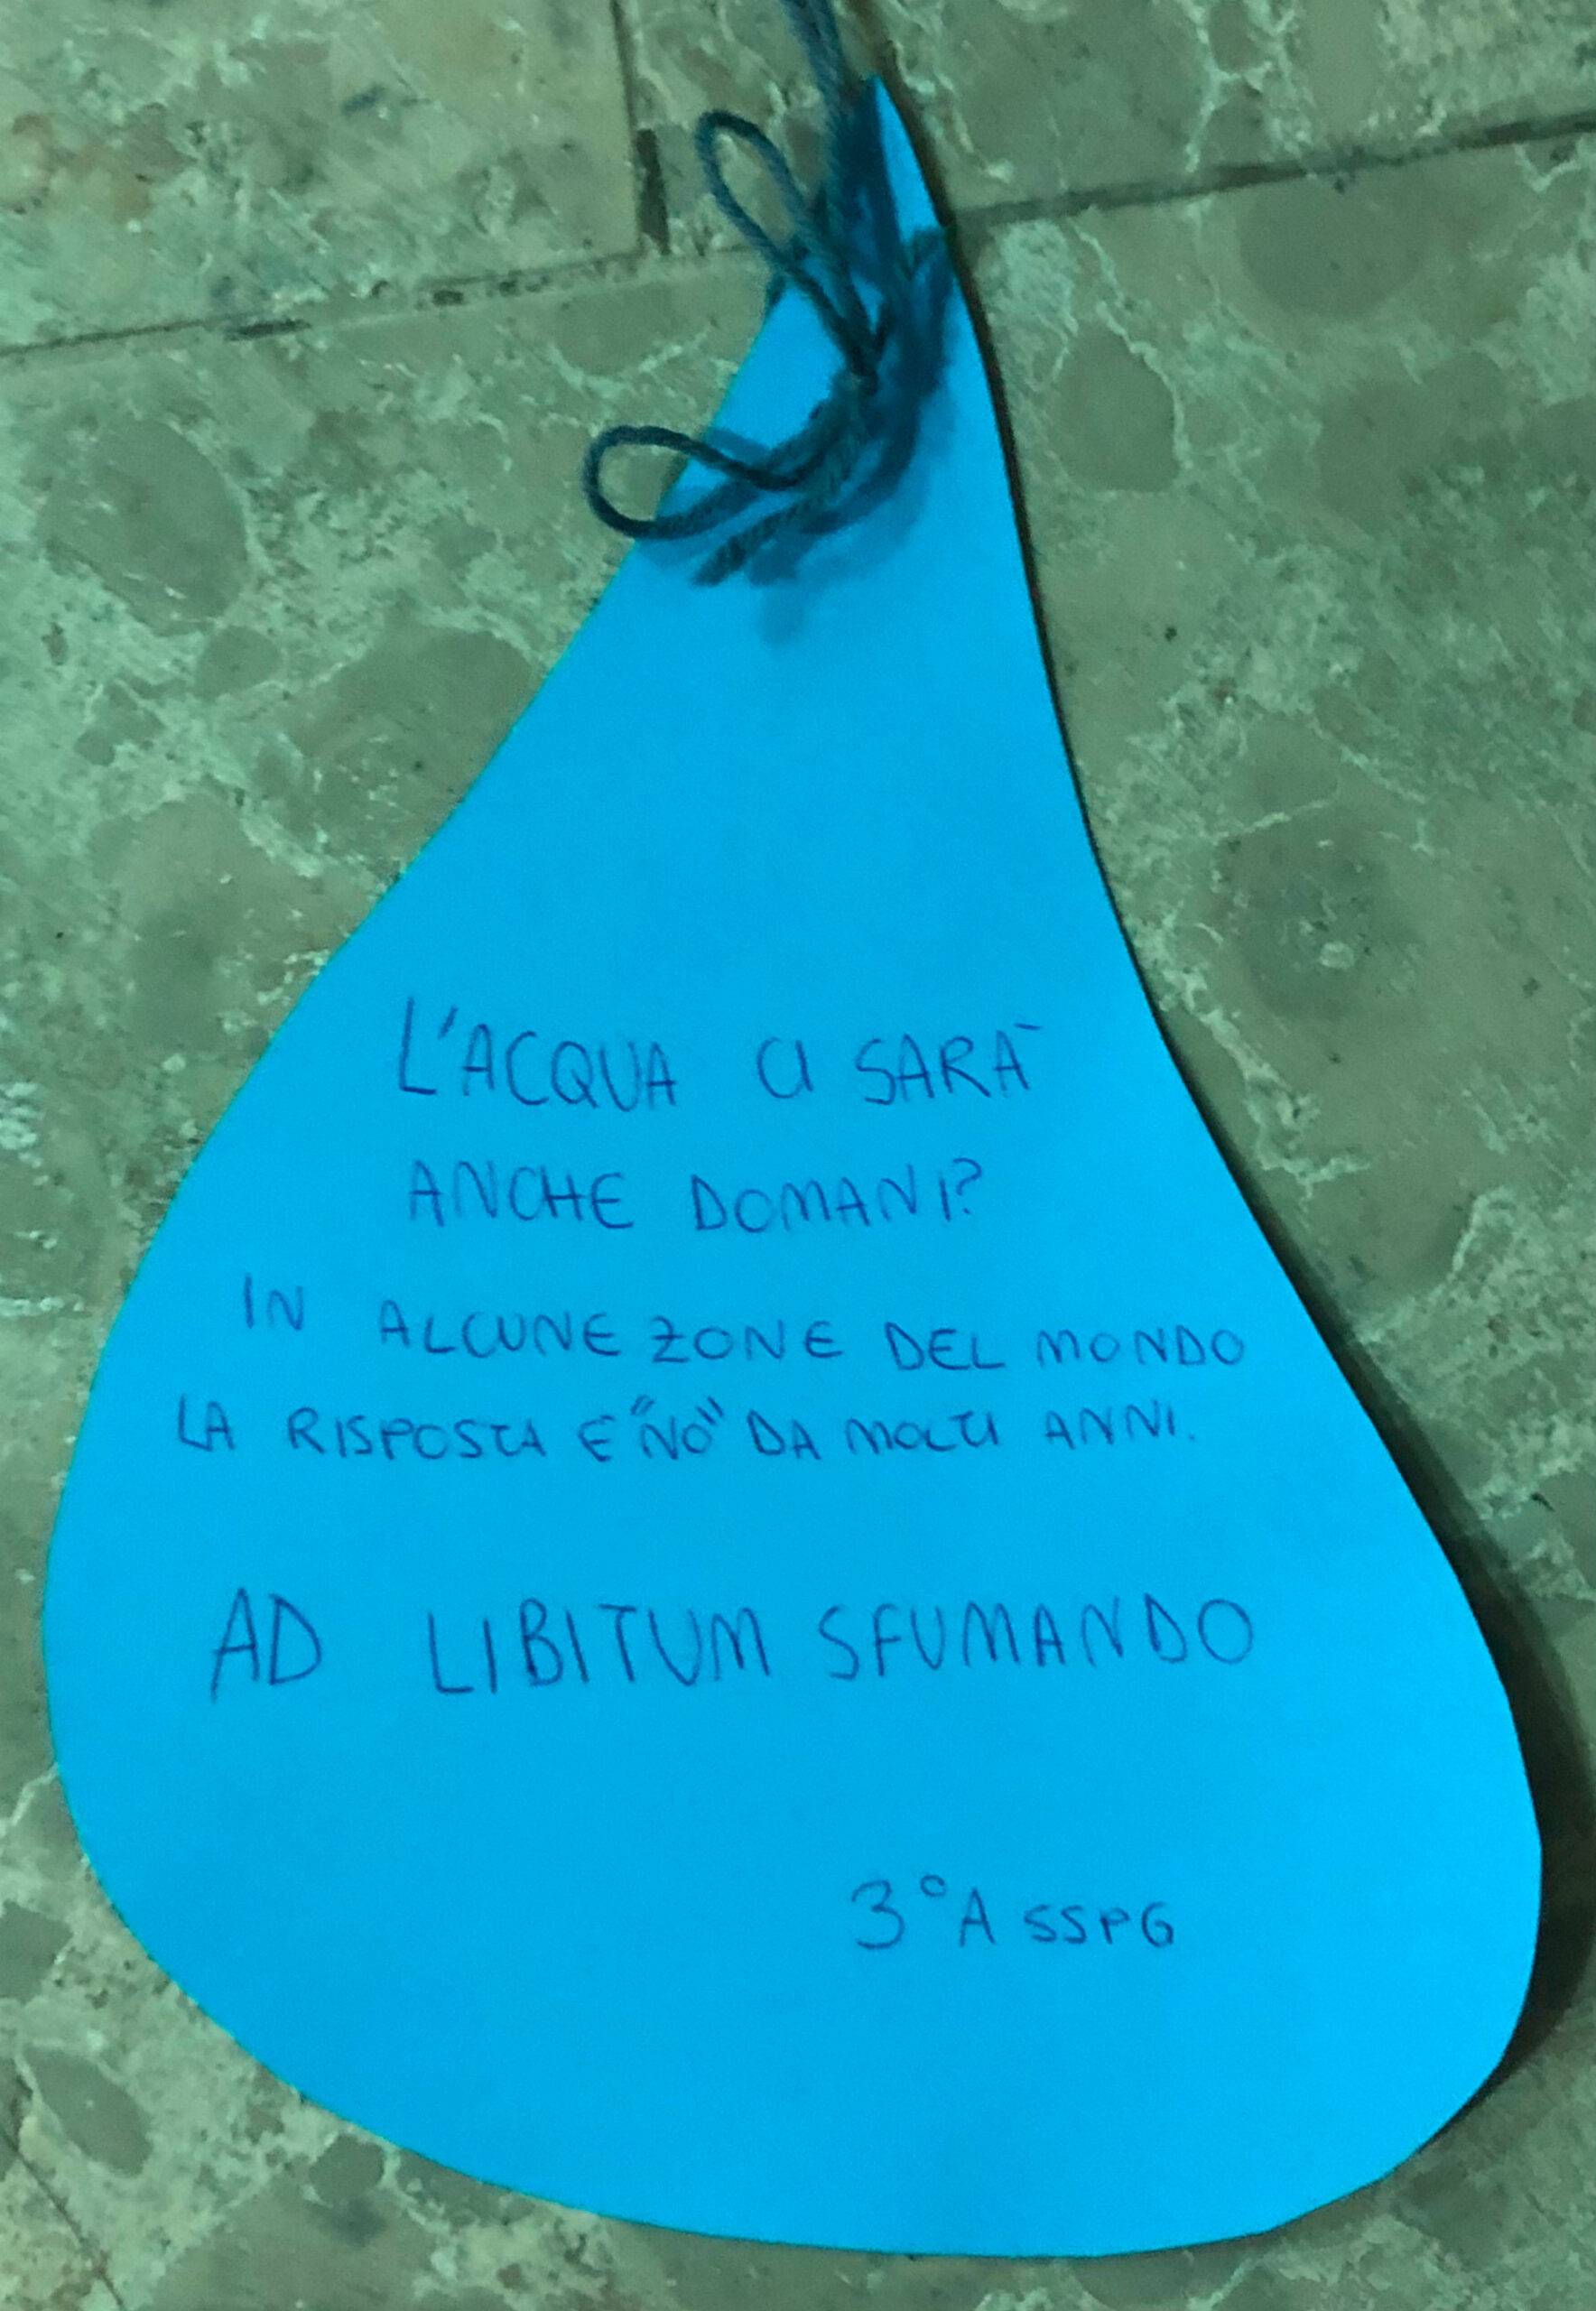 L'ACQUA CI SARÀ
ANCHE DOMANI?
IN ALCUNE ZONE DEL MONDO
LA RISPOSTA È "NO" DA MOLTI ANNI.
AD LIBITUM SFUMANDO
3°A SSPG